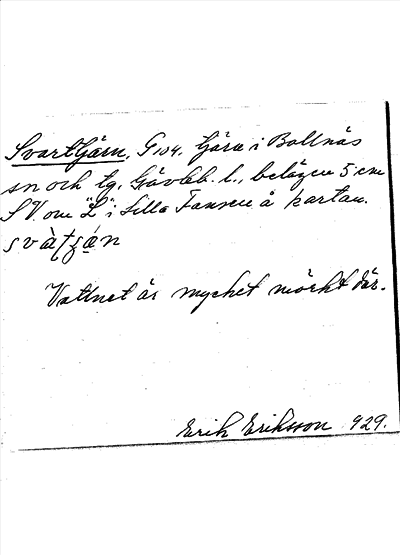 Svarttjärn, G 104. Tjärn i Bollnäs
sn och tg, Gävleb. l., belägen 5 cm
S V. om "L" i Lilla Fansen å kartan.
Vattnet är mycket mörkt där.
Erik Eriksson 929.